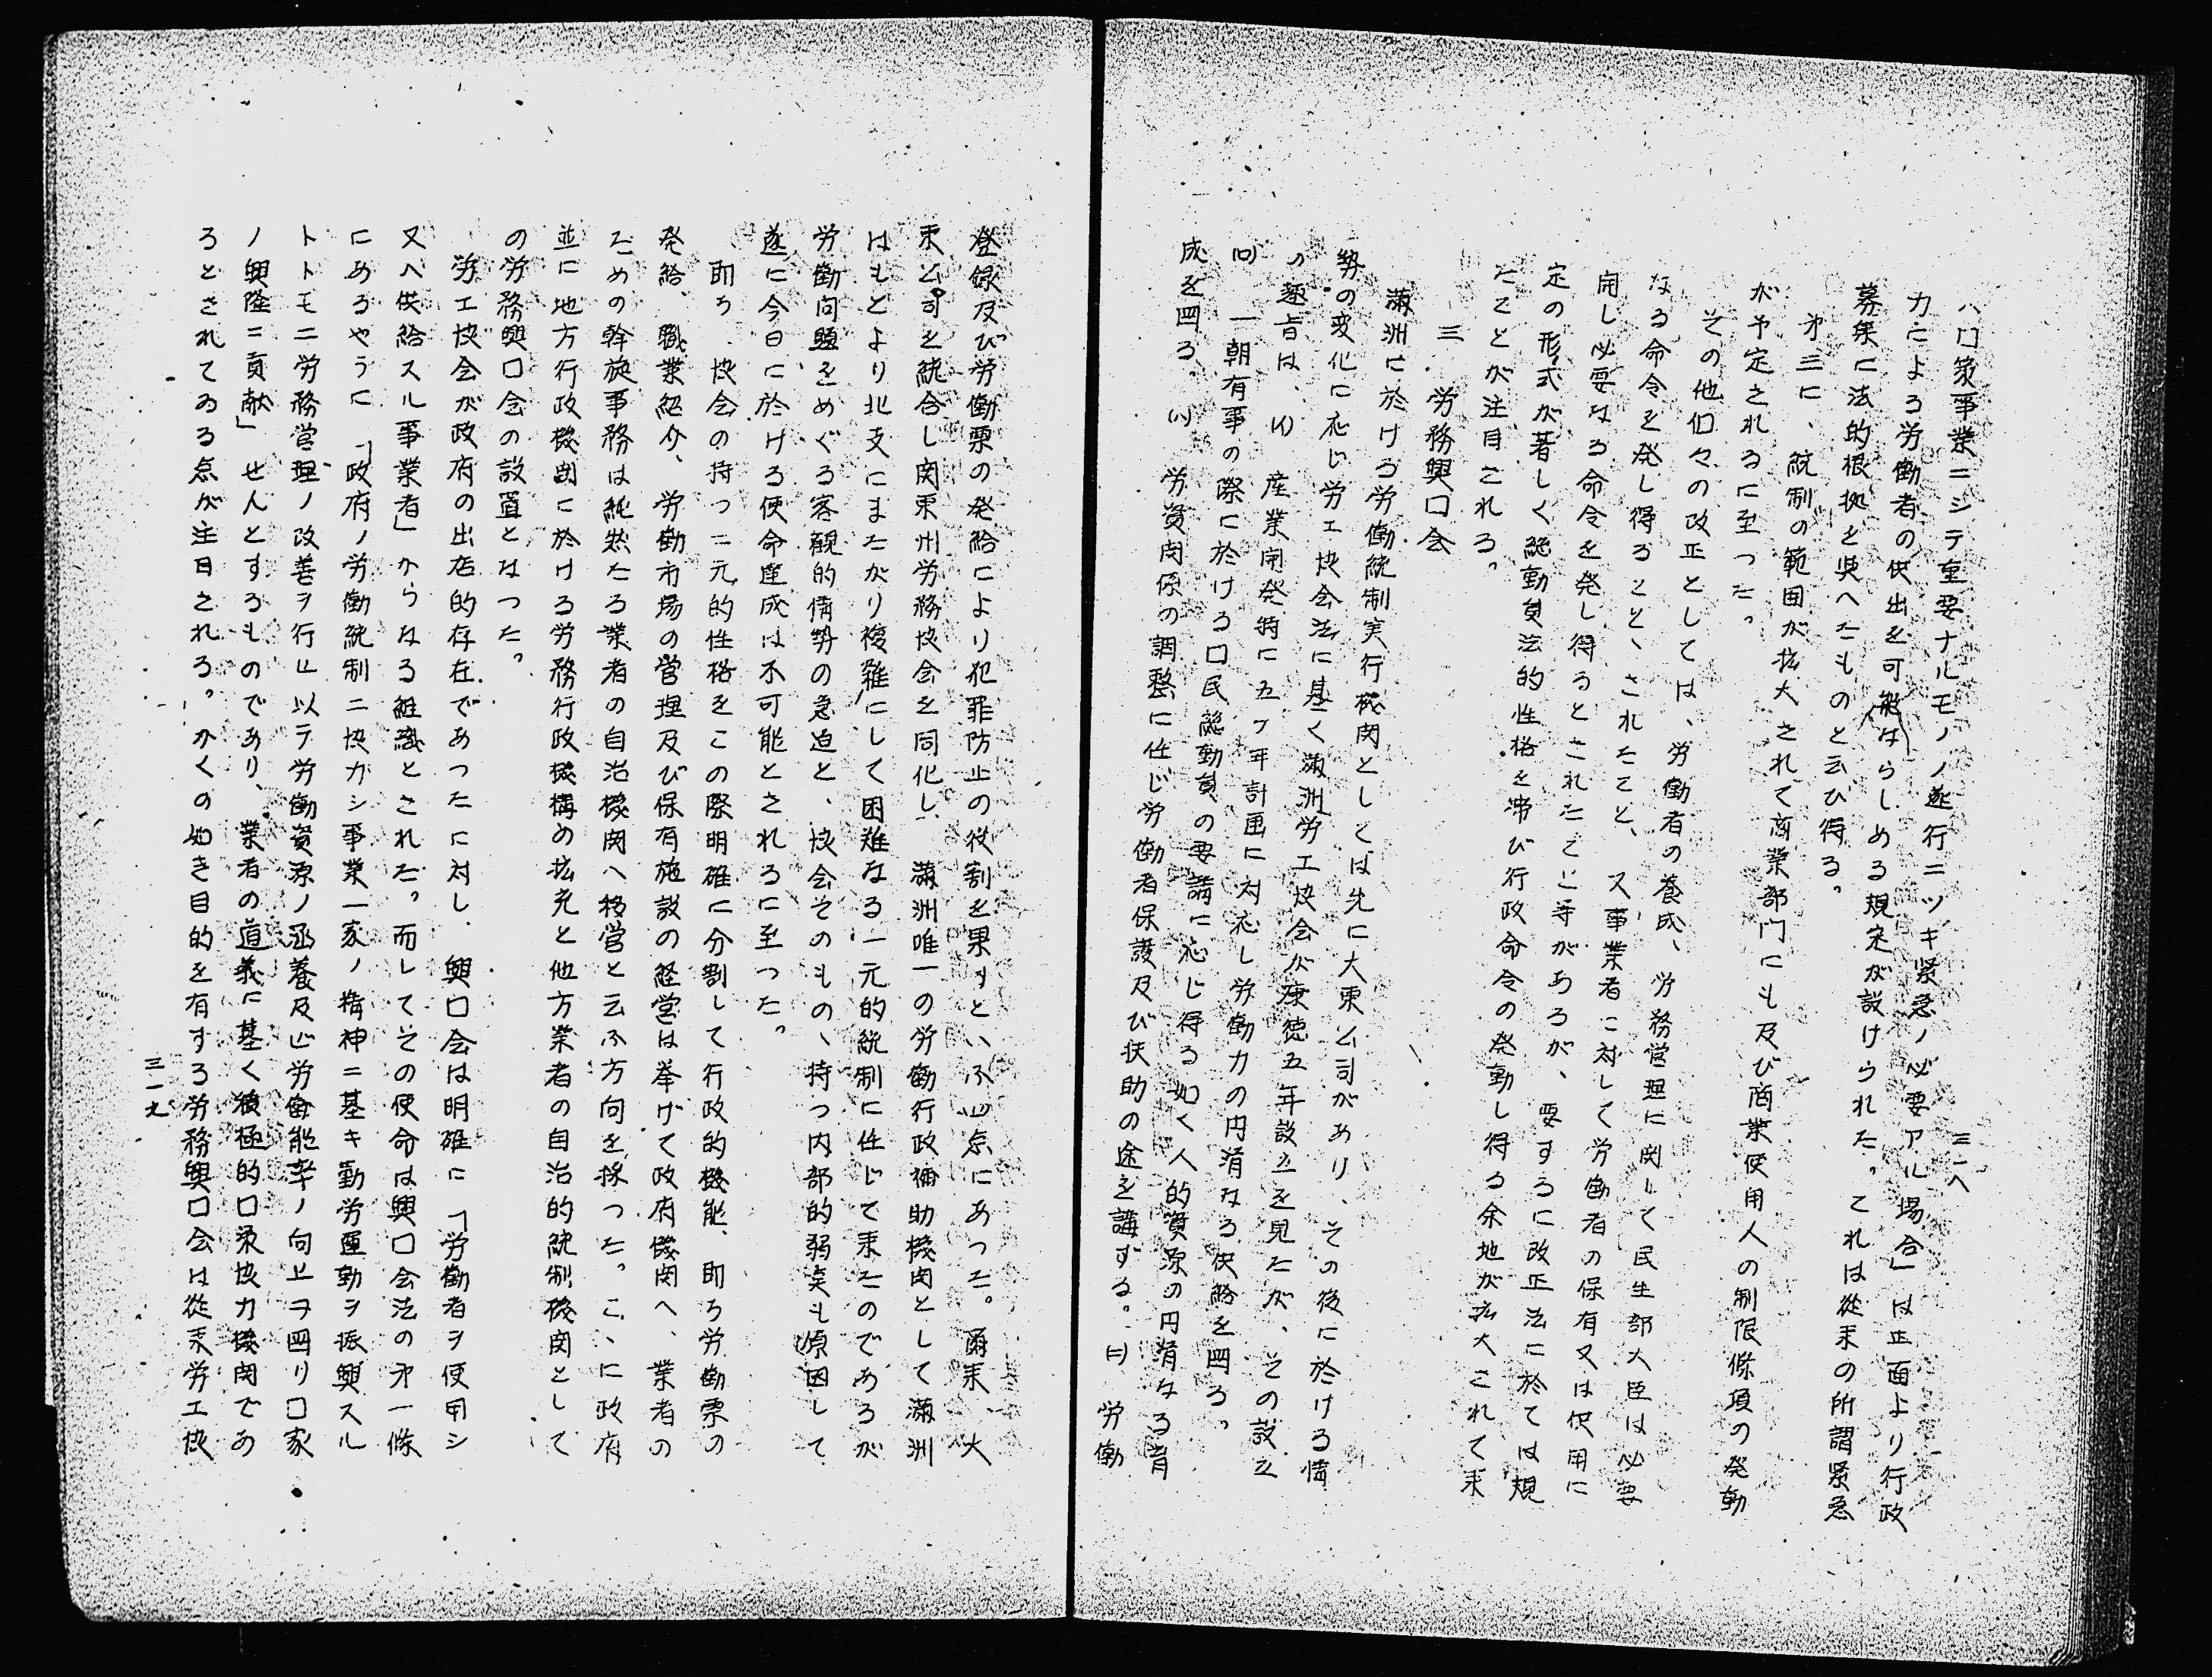 三一八
ハ口策事業ニシテ重要ナルモノノ遂行ニツキ緊急ノ必要アル場合」は正面より行政
力による労働者の供出を可能ならしめる規定が設けられた。これは従来の所謂緊急
募集に法的根拠を与へたものと云ひ得る。
才三に、統制の範囲が拡大されて商業部門にも及び商業使用人の制限條項の発動
が予定されるに至つた。
その他個々の改正としては、労働者の養成、労務管理に関して民生部大臣は必要
なる命令を発し得ること、されたこと、又事業者に対して労働者の保有又は使用に
関し必要なる命令を発し得るとされたこと等があるが、要するに改正法に於ては規
定の形式が著しく総動員法的性格を帯び行政命令の発動し得る余地が拡大されて来
たことが注目される。
三 労務興口会
満洲に於ける労働統制実行機関としては先に大東公司があり、その後に於ける情
勢の変化に応じ労工協会法に基く満洲労工協会が康徳五年設立を見たが、その設立
の趣旨は、(イ) 産業開発特に五ケ年計画に対応し労働力の円滑なる供給を図る。
(ロ) 一朝有事の際に於ける口民総動員の要請に応じ得る如く人的資源の円滑なる育
成を図る、(ハ) 労資関係の調整に任じ労働者保護及び扶助の途を講ずる。(ニ) 労働
登録及び労働票の発給により犯罪防止の役割を果すといふ四点にあつた。爾来、大
東公司を統合し関東州労務協会を同化し、満洲唯一の労働行政補助機関として満洲
はもとより北支にまたがり複雑にして困難なる一元的統制に任じて来たのであるが
労働問題をめぐる客観的情勢の急迫と、協会そのもの、持つ内部的弱点も原因して
遂に今日に於ける使命達成は不可能とされるに至つた。
即ち、協会の持つ二元的性格をこの際明確に分割して行政的機能、即ち労働票の
発給、職業紹介、労働市場の管理及び保有施設の経営は挙げて政府機関へ、業者の
ための斡旋事務は純然たる業者の自治機関へ移管と云ふ方向を採つた。こゝに政府
並に地方行政機関に於ける労務行政機構の拡充と他方業者の自治的統制機関として
の労務興口会の設置となつた。
労工協会が政府の出店的存在であつたに対し、興口会は明確に「労働者ヲ使用シ
又ハ供給スル事業者」からなる組織とされた。而してその使命は興口会法の才一條
にあるやうに「政府ノ労働統制ニ協力シ事業一家ノ精神ニ基キ勤労運動ヲ振興スル
トトモニ労務管理ノ改善ヲ行ヒ以テ労働資源ノ涵養及ビ労働能率ノ向上ヲ図リ口家
ノ興隆ニ貢献」せんとするものであり、業者の道義に基く積極的口策協力機関であ
るとされてゐる点が注目される。かくの如き目的を有する労務興口会は従来労工協
三一九